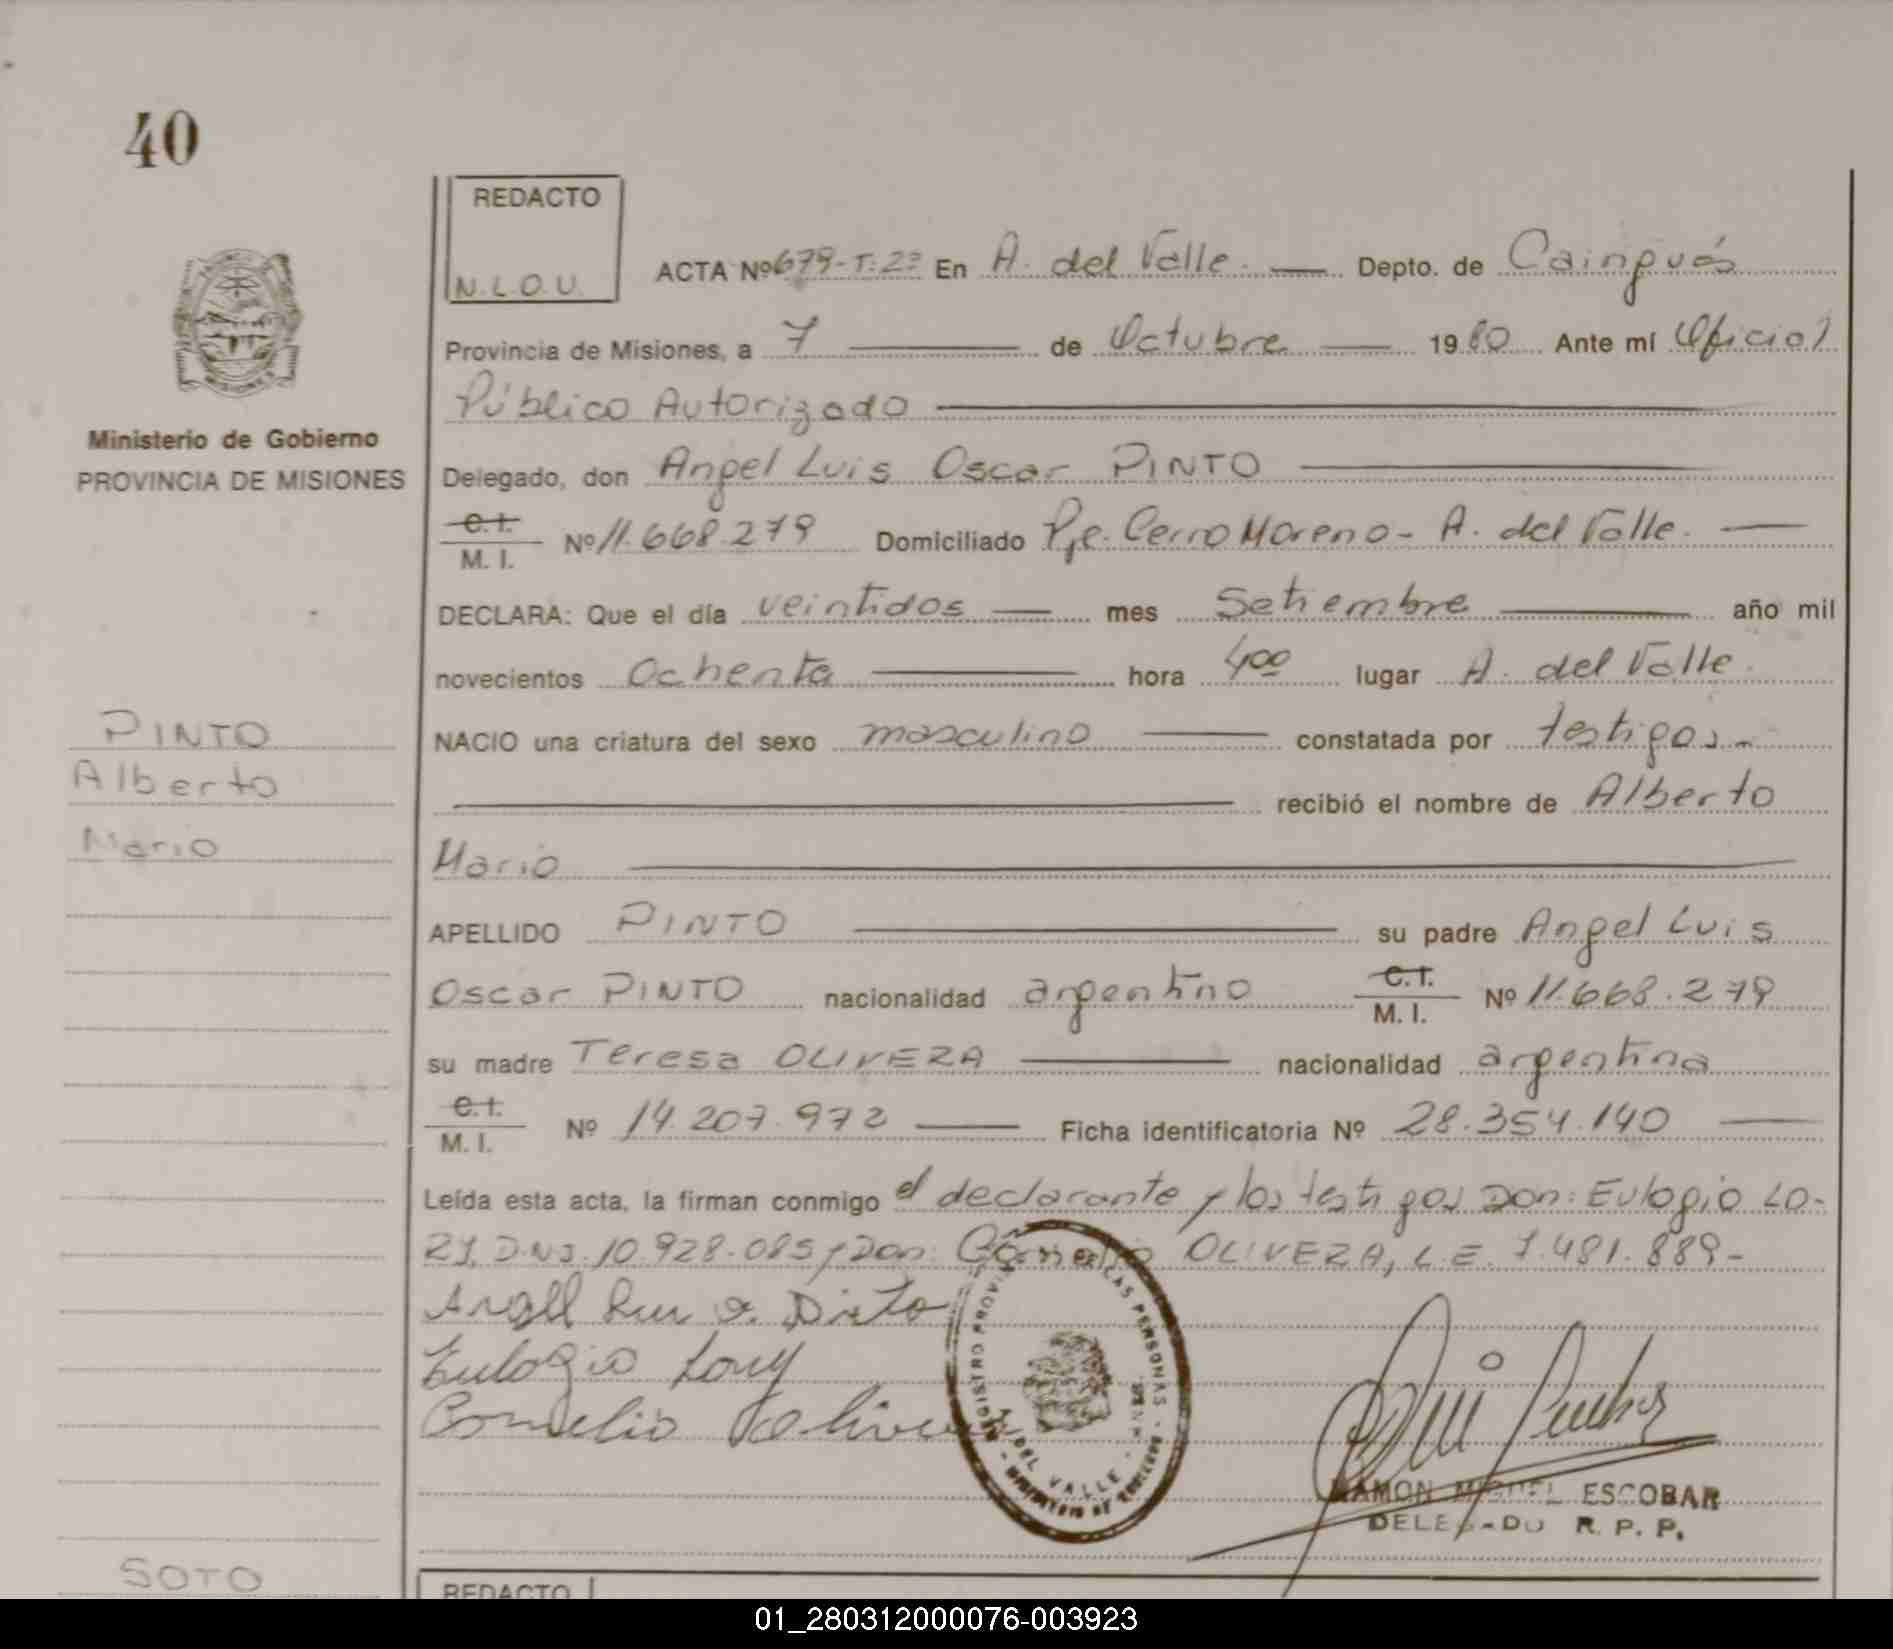 40
REDACTO
N.L.O.U.
ACTA Nº 679-T:2º En A. del Valle. Depto. de Cainguás
Provincia de Misiones, a 7 de Octubre 1980 Ante mí Oficial
Público Autorizado
Ministerio de Gobierno
PROVINCIA DE MISIONES
Delegado, don Angel Luis Oscar PINTO
C.I. M. I. Nº 11.668.279 Domiciliado Pje. Cerro Moreno - A. del Valle.
DECLARA: Que el día veintidos mes Setiembre año mil
novecientos Ochenta hora 4ºº lugar A. del Valle.
PINTO
Alberto
Mario
NACIO una criatura del sexo masculino constatada por testigos.-
recibió el nombre de Alberto
Mario
APELLIDO PINTO su padre Angel Luis
Oscar PINTO nacionalidad argentino C.I. M. I. Nº 11.668.279
su madre Teresa OLIVERA nacionalidad argentina
C.I. M. I. Nº 14.207.972 Ficha identificatoria Nº 28.354.140
Leída esta acta, la firman conmigo el declarante y los testigos Don: Eulogio LO-
ZY, D.N.I. 10.928.085 y Don: Cornelio OLIVERA, L.E. 7.481.889-
Eulogio Lozy
Cornelio Olivera
PERSONAS
DEL VALLE
RAMON MIGUEL ESCOBAR
DELEGADO R. P. P.
SOTO
REDACTO
01_280312000076-003923